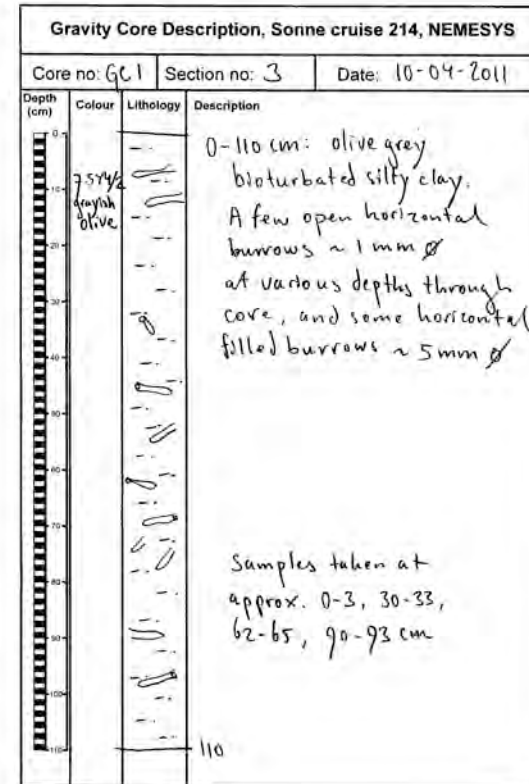 Gravity Core Description, Sonne cruise 214, NEMESYS
Core no: GC1 Section no: 3 Date: 10-04-2011
Depth (cm) Colour Lithology Description
0
10
20
30
40
50
60
70
80
90
100
110
7.5Y4/2
grayish
olive
0-110 cm: olive grey
bioturbated silty clay.
A few open horizontal
burrows ~ 1 mm ø
at various depths through
core, and some horizontal
filled burrows ~ 5 mm ø
Samples taken at
approx. 0-3, 30-33,
62-65, 90-93 cm
110